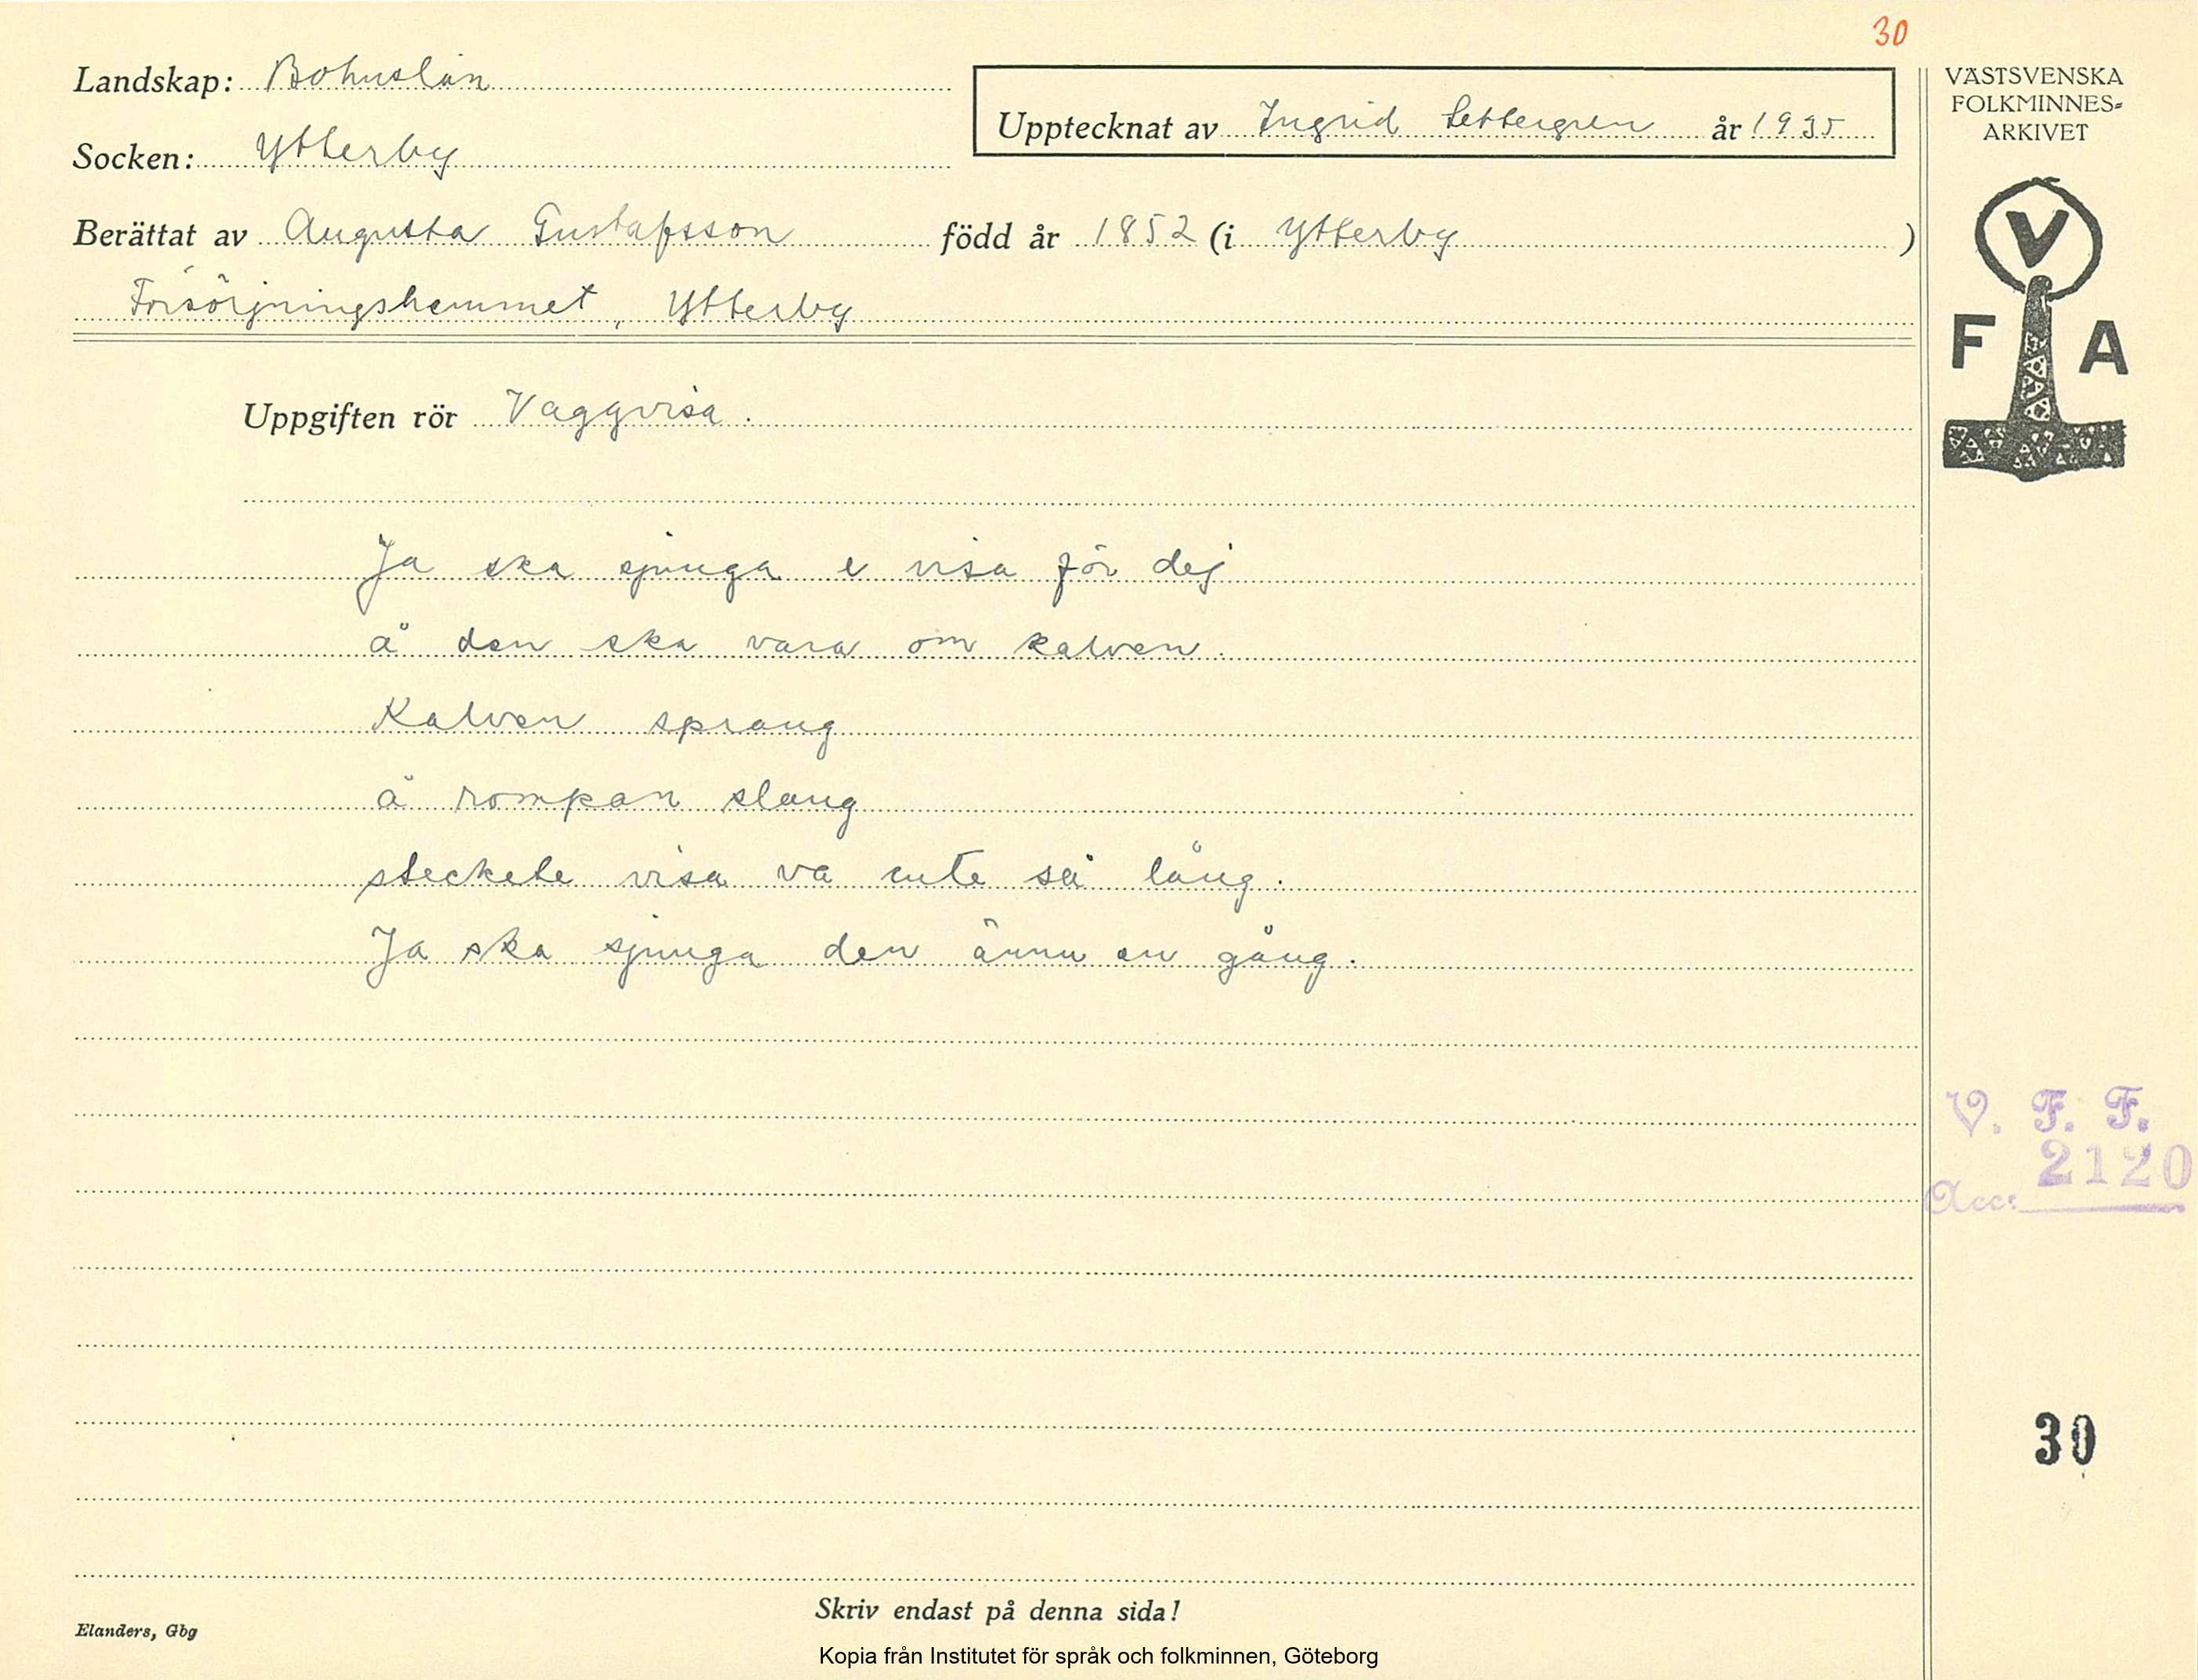 30
Landskap: Bohuslän
Socken: Ytterby
Upptecknat av Ingrid Settergren år 1935
Berättat av Augusta Gustafsson född år 1852 (i Ytterby )
Försörjningshemmet, Ytterby
Uppgiften rör Vaggvisa.
Ja ska sjunga e visa för dej
å den ska vara om kalven.
Kalven sprang
å rompan slang
steckete visa va inte så lång.
Ja ska sjunga den ännu en gång.
Skriv endast på denna sida!
Elanders, Gbg
Kopia från Institutet för språk och folkminnen, Göteborg
VÄSTSVENSKA
FOLKMINNES-
ARKIVET
V
F A
V. F. F.
Acc: 2120
30